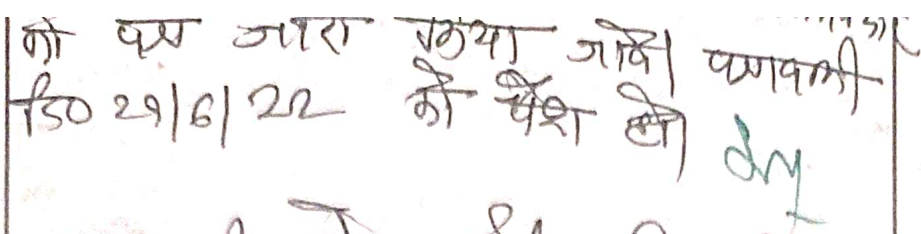 को पत्र जारी किया जावे। पत्रावली
दि0 29/6/22 को पेश हो।